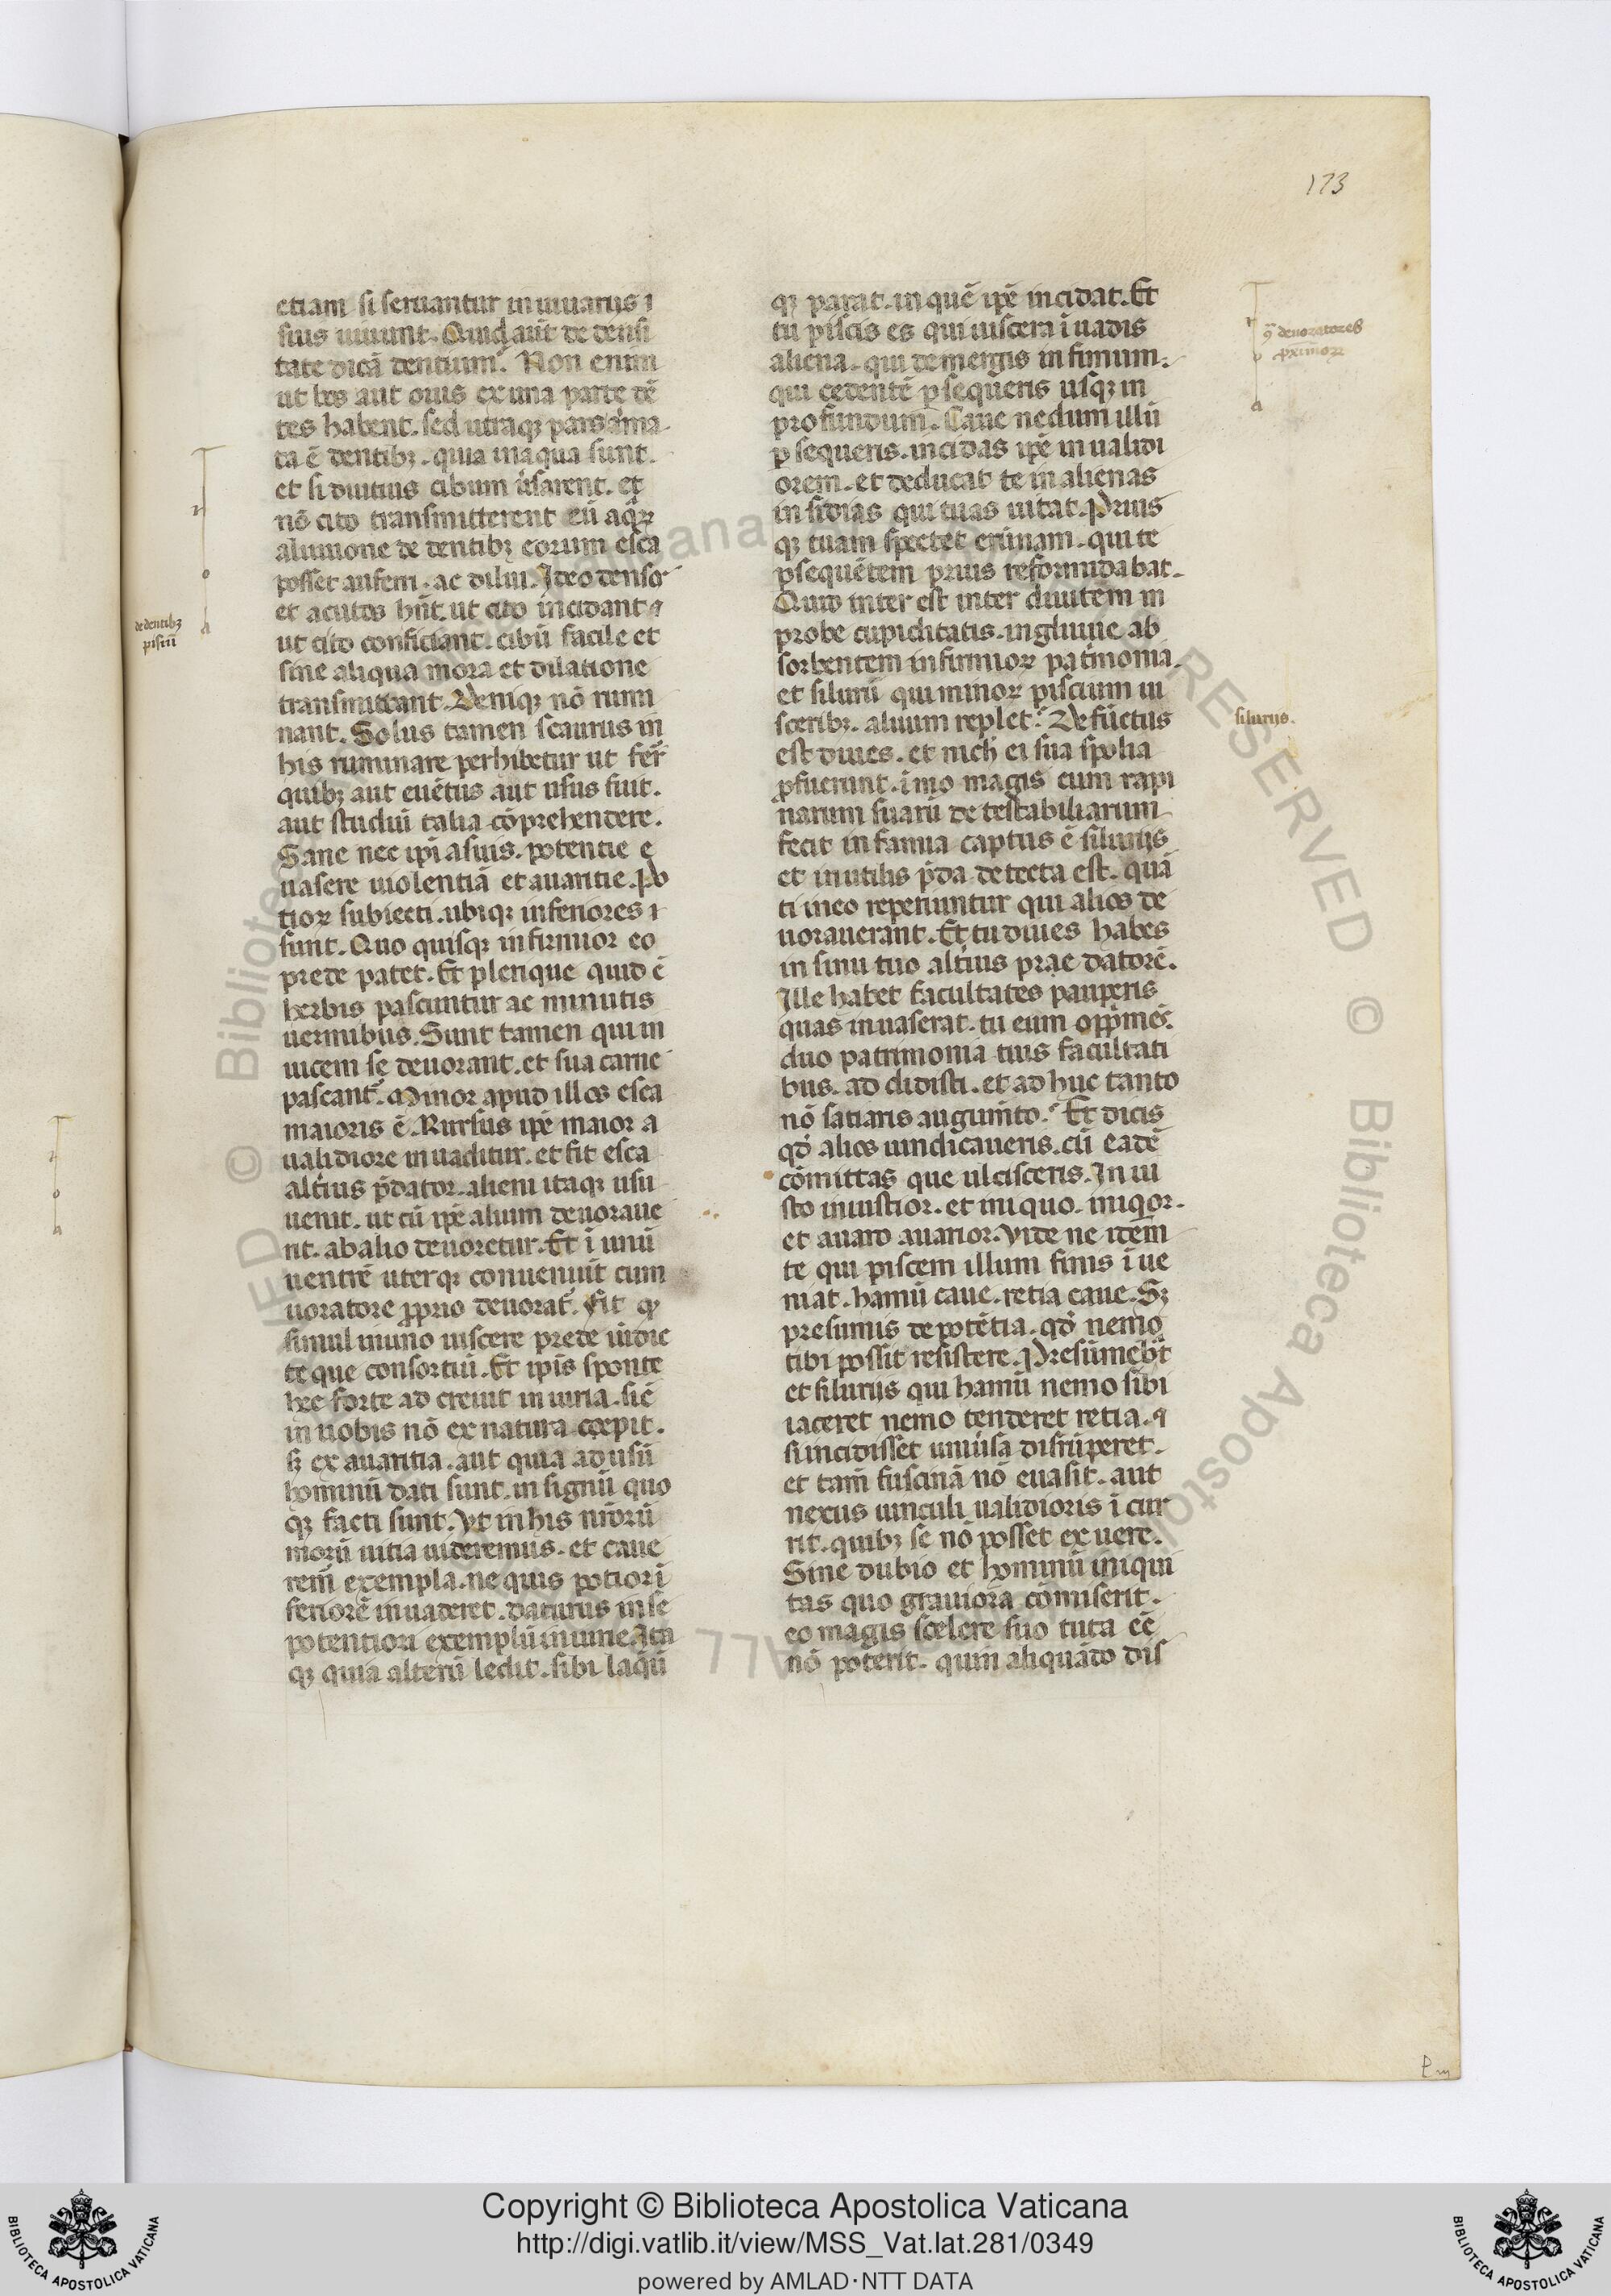 173
etiam si seruantur in uiuariis i
sius uiuunt. Quid aūt de densi
tate dicā dentium? Non enim
ut bos aut ouis ex una parte dē
tes habent. sed utraqꝫ pars arma
ta ē dentibꝫ. quia in aqua sunt.
et si diutius cibum uersarent. et
nō cito transmitterent eū aqꝝ
aluuione de dentibꝫ eorum esca
posset auferri. ac dilui. Ideo densos
et acutos hn̄t. ut cito incidant ⁊
ut cito conficiant. cibū facile et
sine aliqua mora et dilatione
transmittant. Deniqꝫ nō rumi
nant. Solus tamen scaurus in
his ruminare perhibetur ut fer̄
quibꝫ aut euētus aut usus fuit.
aut studiū talia cōprehendere.
Sane nec ip̄i a suis. potentie e
uasere uiolentiā et auaritie. Po
tioꝝ subiecti. ubiqꝫ inferiores
sunt. Quo quisqꝫ infirmior eo
prede patet. Et plerique quidē
herbis pascuntur ac minutis
uermibus. Sunt tamen qui in
uicem se deuorant. et sua carne
pascant᷑. Minor apud illos esca
maioris ē. Rursus ip̄e maior a
ualidiore inuaditur. et fit esca
alt̄ius p̄dator. alieni itaqꝫ usu
uenit. ut cū ip̄e alium deuoraue
rit. ab alio deuoretur. Et ī unū
uentrē uterqꝫ conuenūit cum
uoratore ꝓprio deuorat᷑. Fit qꝫ
simul in uno uiscere prede uīdic
te que consortiū. Et ip̄is sponte
hec forte ad creuit iniuria. sic̄
in uobis nō ex natura coepit.
sꝫ ex auaritia. aut quia ad usū
hominū dati sunt. in signū quo
qꝫ facti sunt. Ut in his nr̄orū
morū uitia uideremus. et caue
rem̄ exempla. ne quis potior ī
feriorē inuaderet. daturus in se
potentiori exemplū iniurie. Ita
qꝫ quia alterū ledit. sibi laq̄ū
de dentibꝫ
pisciū
qꝫ parat. in quē ip̄e incidat. Et
tu piscis es qui uiscera īuadis
aliena. qui demergis infimum.
qui cedentē ꝑsequeris usqꝫ in
profundum. Caue ne dum illū
ꝑsequeris. incidas ip̄e in ualidi
orem. et deducat te in alienas
insidias qui tuas uitat. Prius
qꝫ tuam spectet erūnam. qui te
ꝑsequētem prius reformidabat.
Quid inter est inter diuitem in
probe cupiditatis. ingluuie ab
sorbentem infirmioꝝ pat̄monia.
et silurū qui minoꝝ piscium ui
sceribꝫ. aluum replet? Defūctus
est diues. et nich̄ ei sua spolia
ꝓfuerunt. īmo magis eum rapi
narum suarū detestabiliarum
fecit infamia captus ē silurus
et inutilis p̄da detecta est. quā
ti in eo reperiuntur qui alios de
uorauerant. Et tu diues habes
in sinu tuo alt̄ius praedatorē.
Ille habet facultates pauperis
quas inuaserat. tu eum opprimēs.
duo patrimonia tuis facultati
bus. ad didisti. et ad huc tanto
nō satiaris augumēto. Et dicis
qd̄ alios uindicaueris. cū eadē
cōmittas que ulcisceris. In iu
sto iniustior. et iniquo. iniqor.
et auaro auarior. Vide ne idem̄
te qui piscem illum finis īue
niat. hamū caue. retia caue. Sꝫ
presumis de potētia. qd̄ nemo
tibi possit resistere. Presumeb̄t
et silurus qui hamū nemo sibi
iaceret nemo tenderet retia. ⁊
si incidisset uniūsa disrūperet.
et tam̄ fuscinā nō euasit. aut
nexus uinculi ualidioris īcur
rit. quibꝫ se nō posset exuere.
Sine dubio et hominū iniqui
tas quo grauiora cōmiserit.
eo magis scelere suo tuta eē
nō poterit. quin aliquādo dis
ꝯ̄ deuoratores
pximoꝝ
silurus.
Copyright © Biblioteca Apostolica Vaticana
http://digi.vatlib.it/view/MSS_Vat.lat.281/0349
powered by AMLAD·NTT DATA
BIBLIOTECA APOSTOLICA VATICANA
BIBLIOTECA APOSTOLICA VATICANA